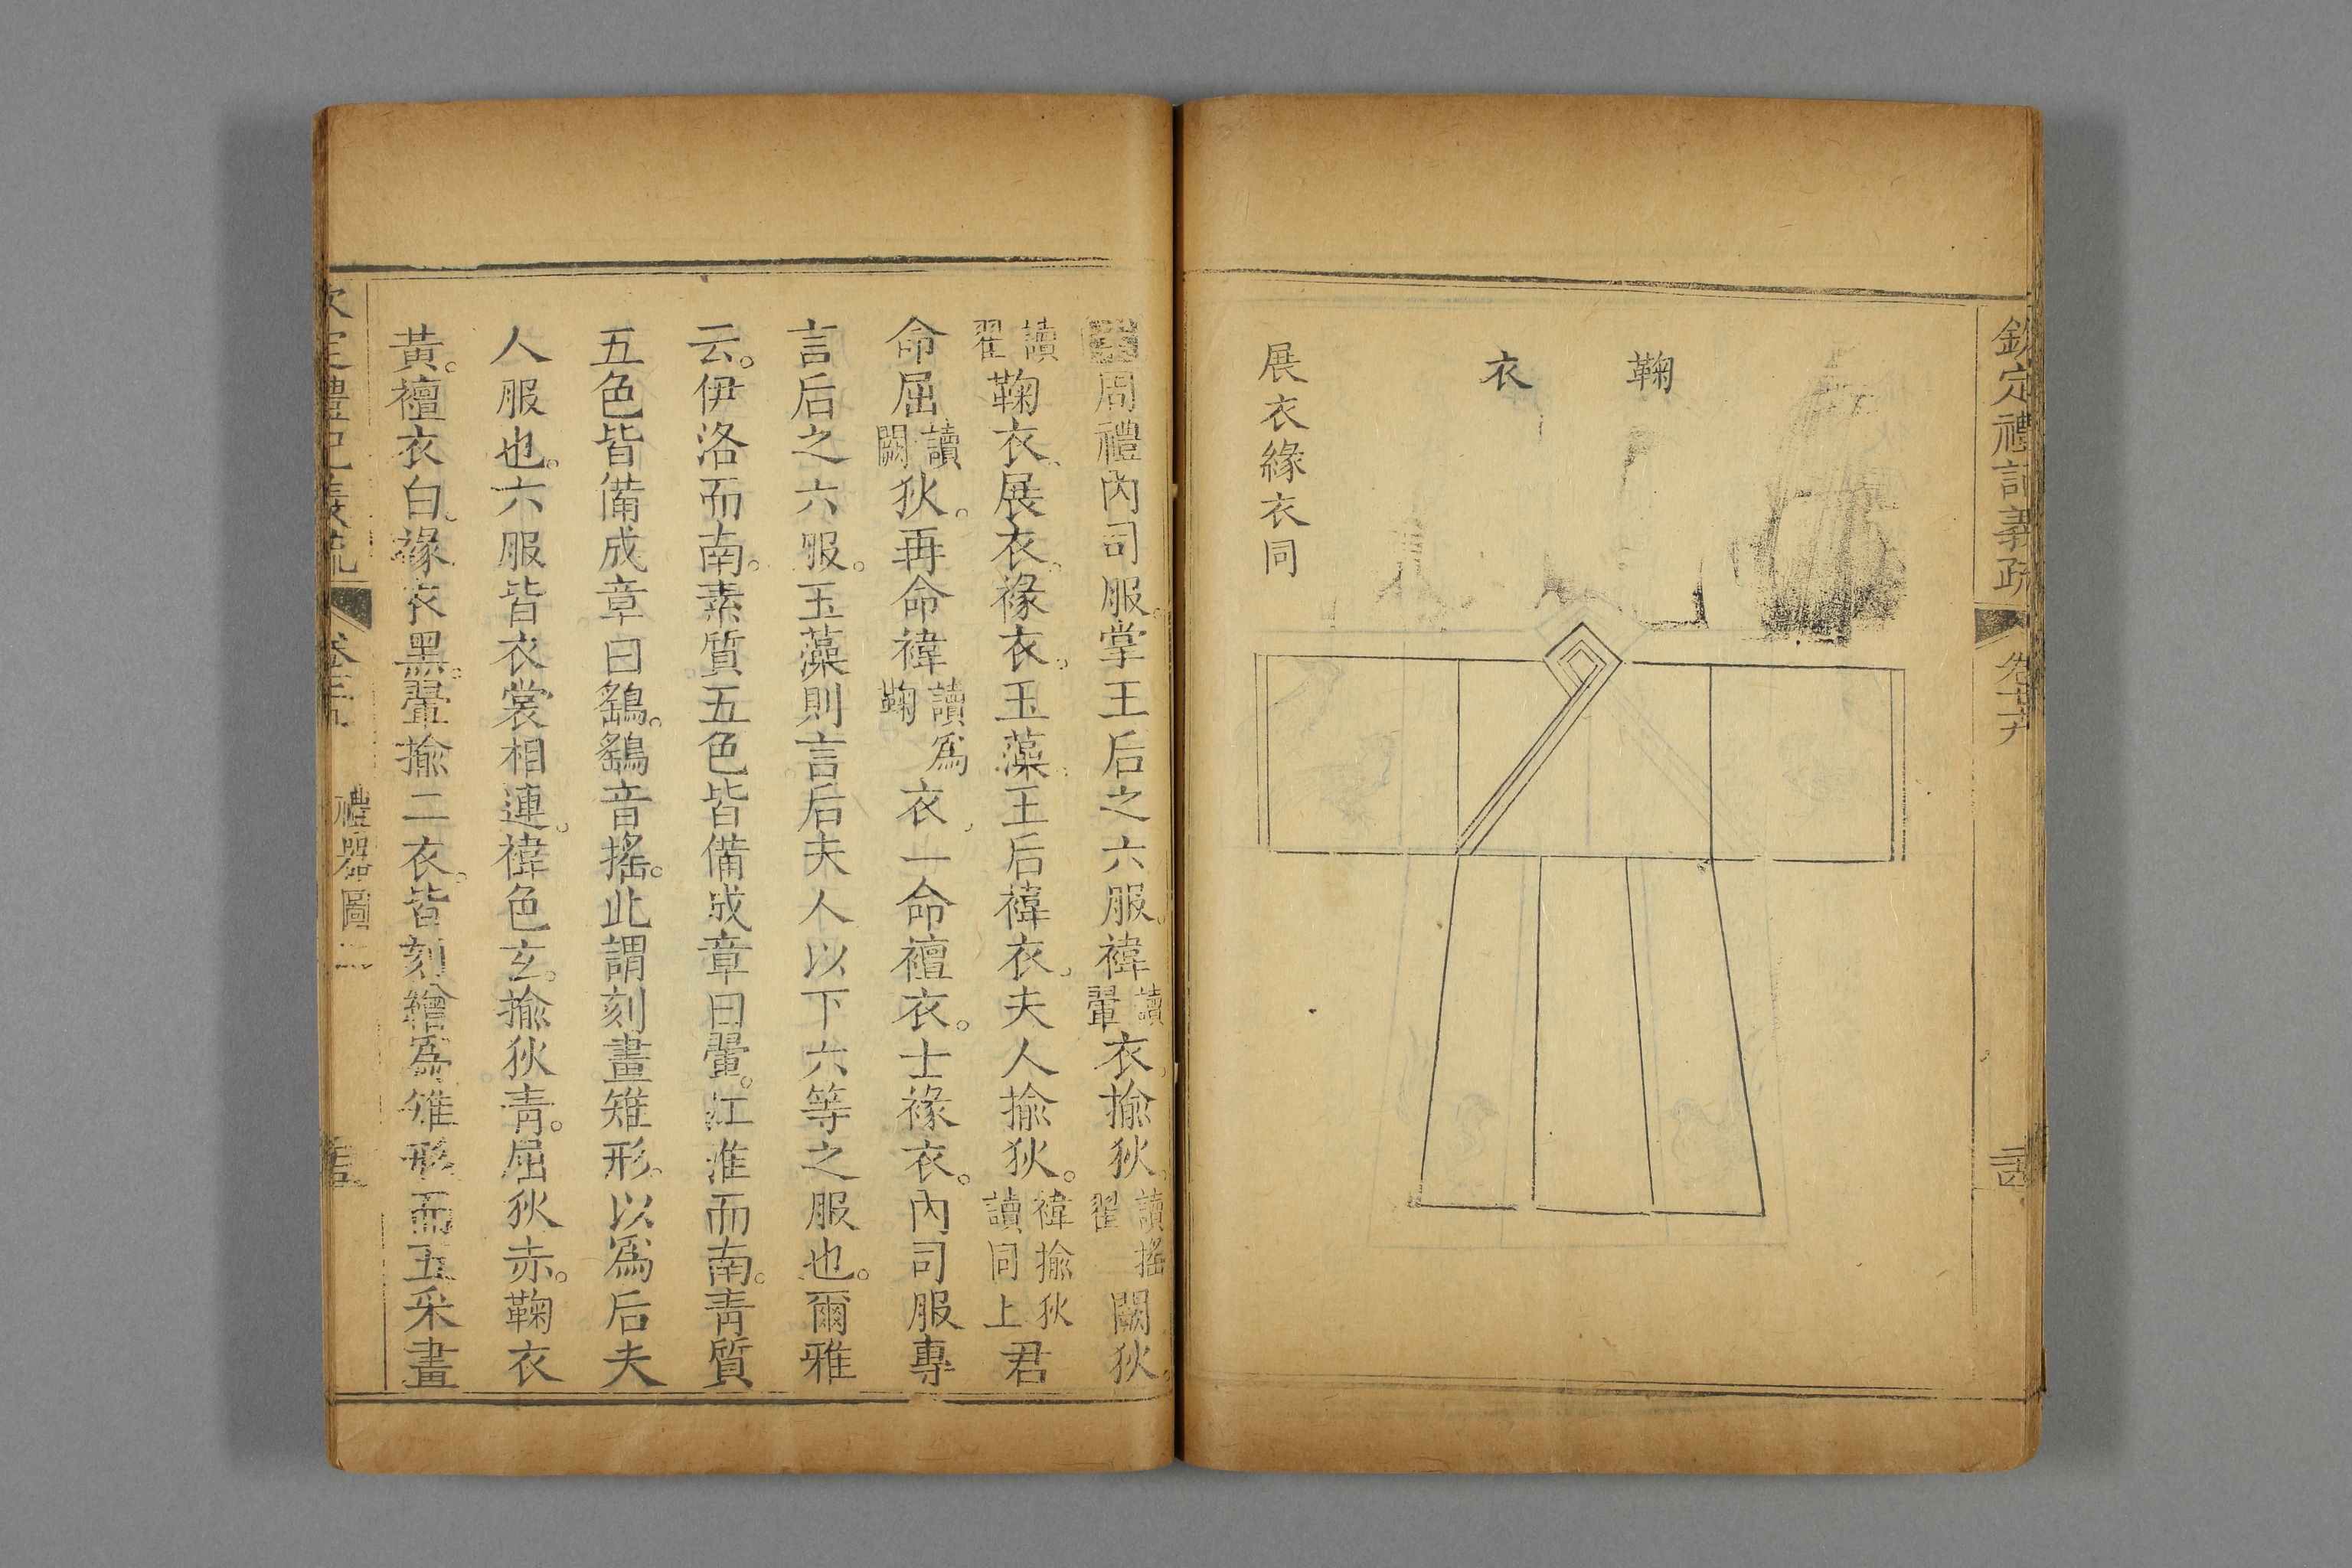 欽定禮記義疏
鞠衣
展衣緣衣同
周禮內司服。掌王后之六服。褘讀翬衣、揄狄。讀搖翟闕狄。
讀翟鞠衣、展衣。褖衣。玉藻。王后褘衣、夫人揄狄。褘揄狄讀同上君
命屈讀闕狄。再命褘讀爲鞠衣、一命襢衣。士褖衣。內司服專
言后之六服。玉藻則言后夫人以下六等之服也。爾雅
云。伊洛而南。素質五色皆備成章曰翬。江淮而南。青質
五色皆備成章曰鷂。鷂音搖。此謂刻畫雉形。以爲后夫
人服也。六服皆衣裳相連。褘色玄。揄狄青。屈狄赤。鞠衣
黃。襢衣白。褖衣黑。翬揄二衣。皆刻繒爲雉形而五采畫
定禮記義疏 禮器圖二